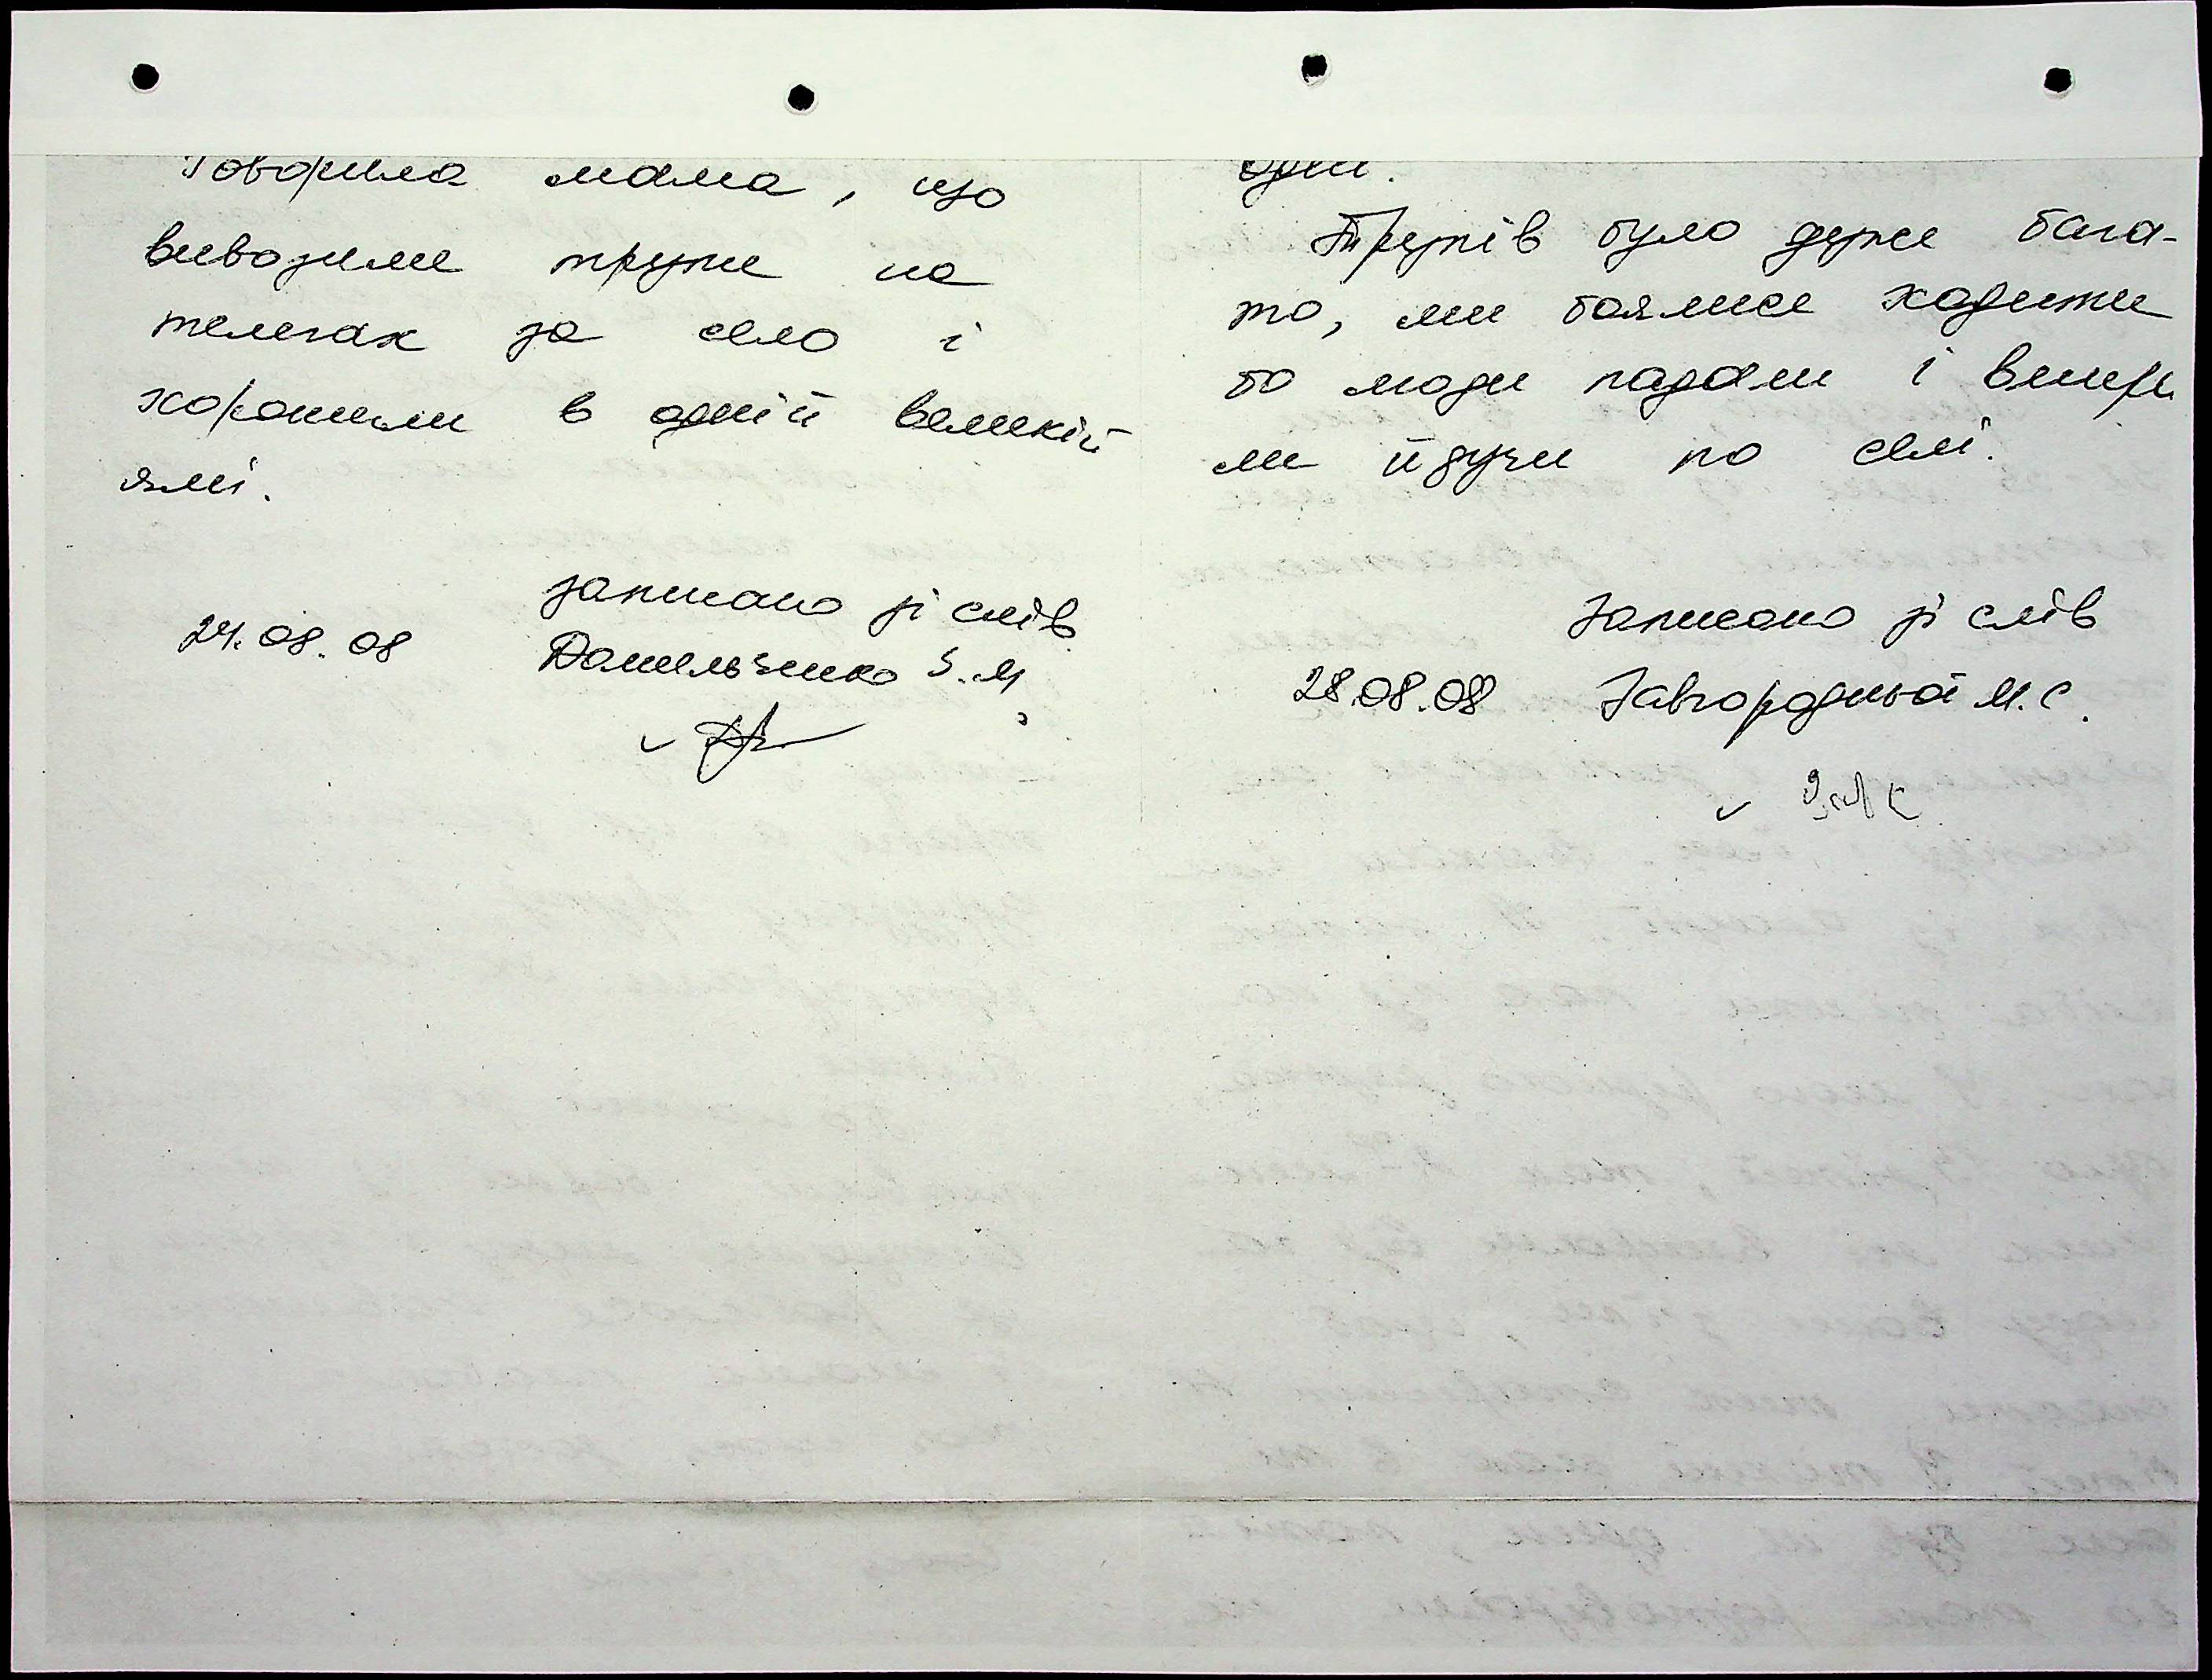 Говорила мама, що
вивозили трупи на
телегах за село і
хоронили в одній великій
ямі.
записано зі слів
24.08.08 Данильченко
одни.
Трупів було дуже бага-
то, ми боялися ходити
бо люди падали і вмира
ли йдучи по селі.
Записано зі слів
28.08.08 Завгородньої М.С.